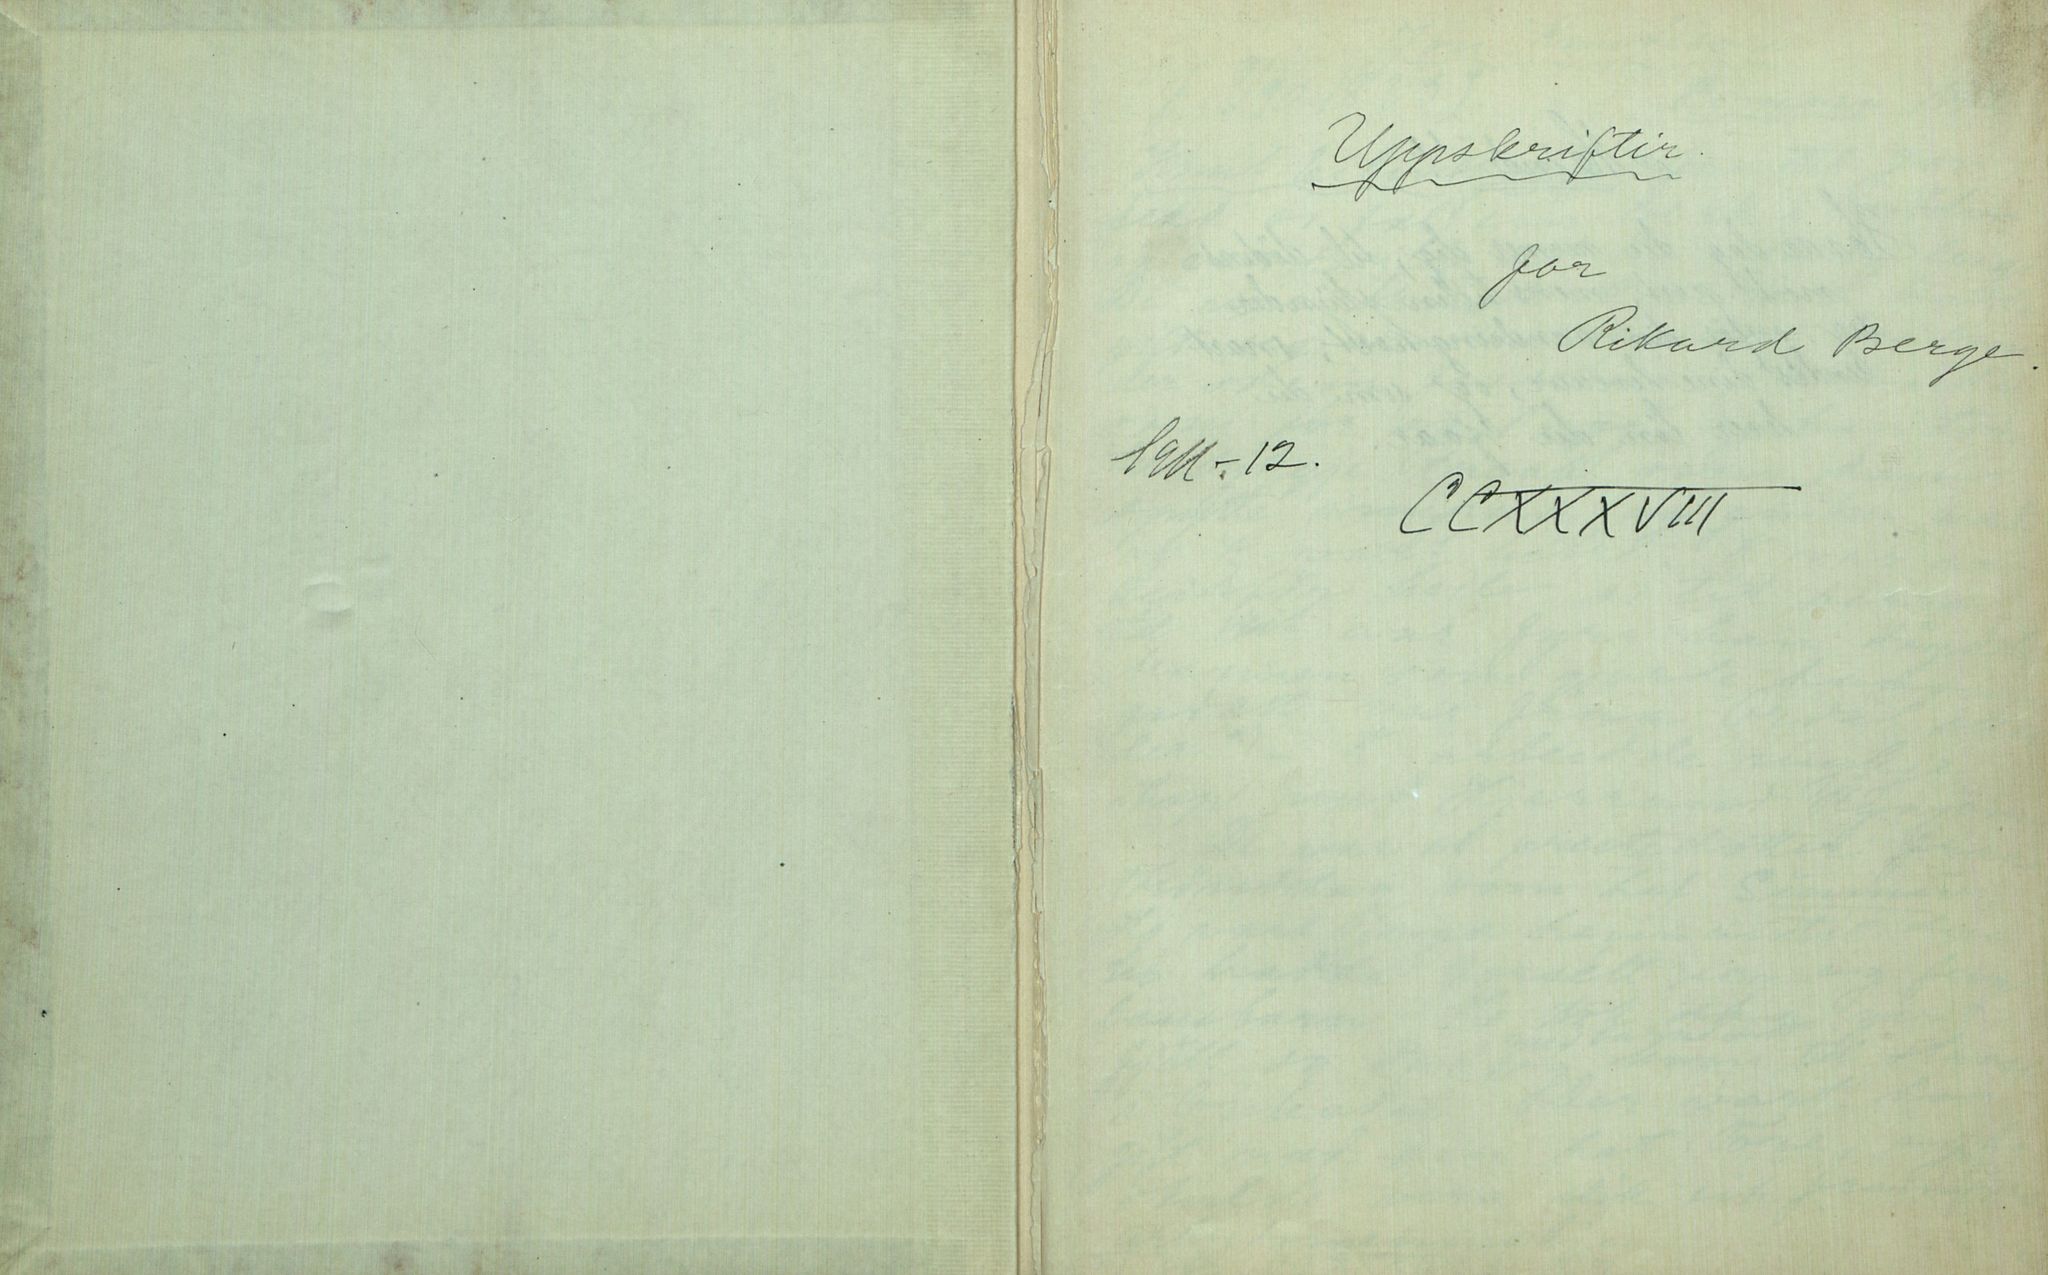 Uppskriftir.
for
Rikard Berge.
1911-12.
CCXXXVIII